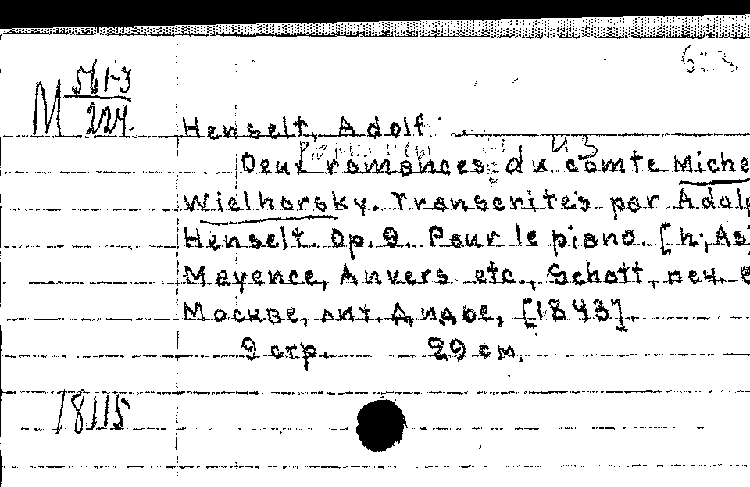 M 561-3
224.
Henselt, Adolf.
из
Deux romances du comte Miche
Wielhorsky. Transcrites par Adolp
Henselt. Op. 9. Pour le piano. [h; As]
Mayence, Anvers etc., Schott, печ. в
Москве, лит. Дидве, [1843].
9 стр. 29 см.
18115